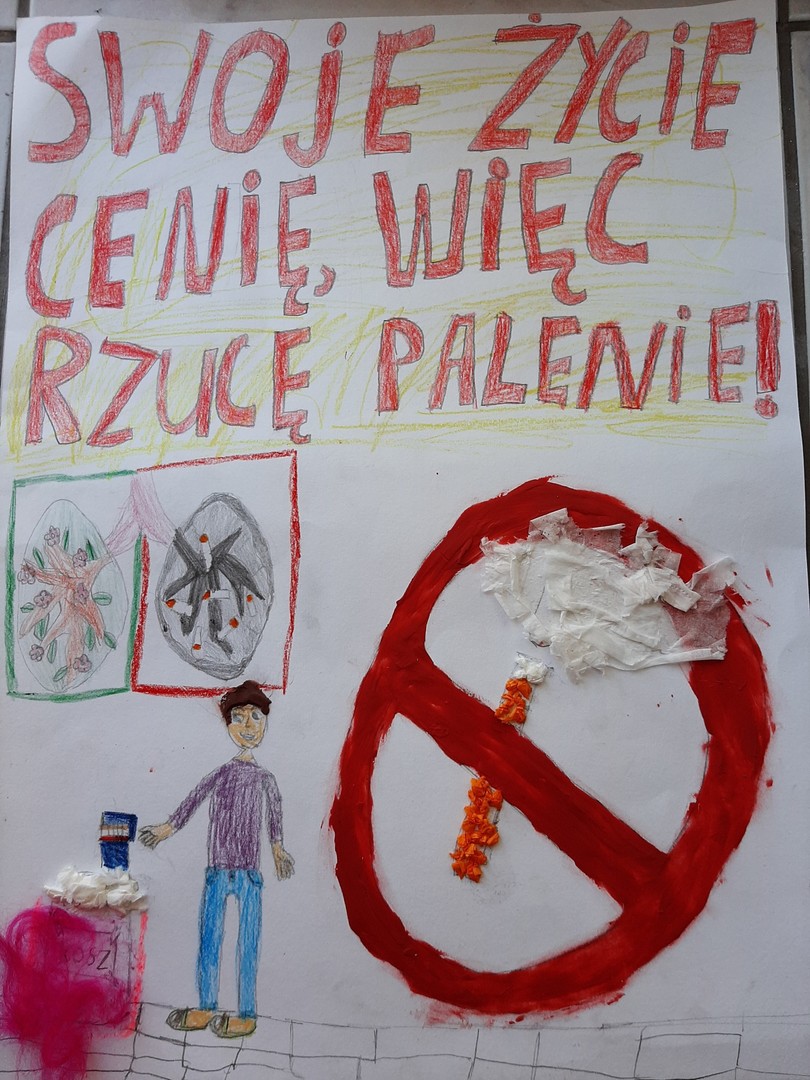 SWOJE ŻYCIE
CENIĘ, WIĘC
RZUCĘ PALENIE!
KOSZ